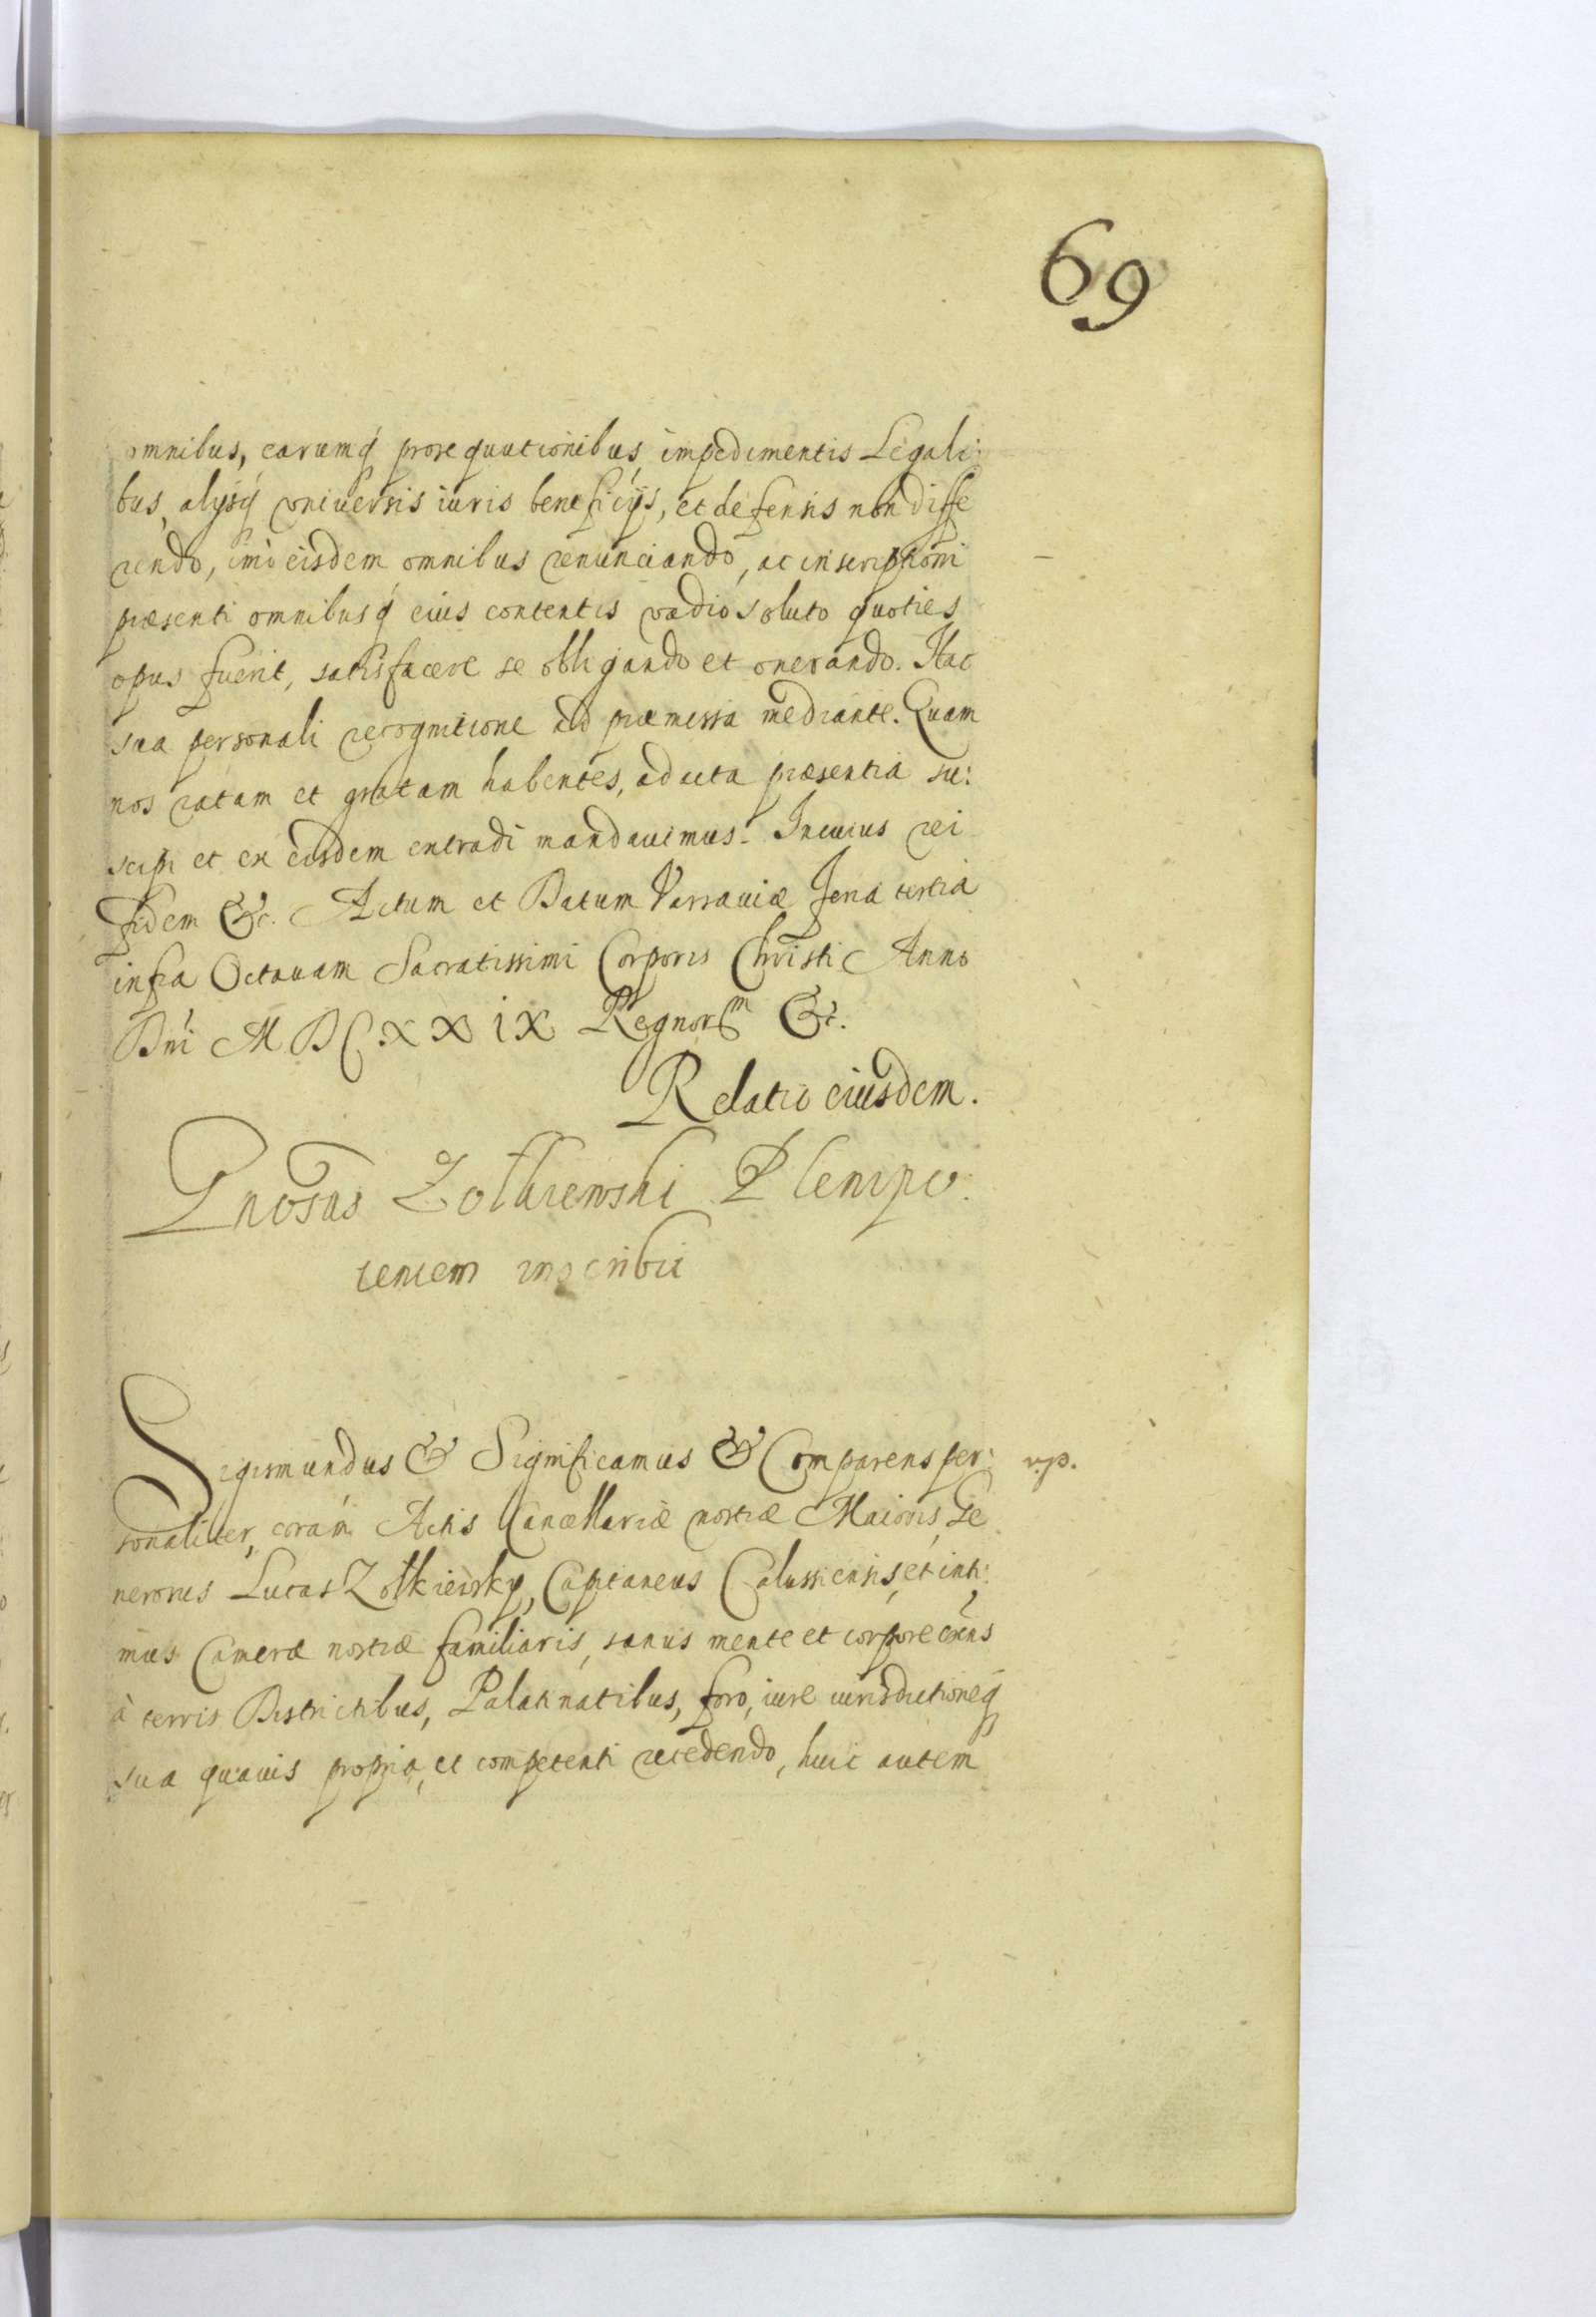 69
omnibus, earumq́ prosequutionibus, impedimentis Legali:
bus, alijsq́ vniuersis iuris beneficijs, et defensis non diffe
rendo, imò eisdem omnibus renunciando, ac inscriptioni
præsenti omnibusq́ eius contentis vadio soluto quoties
opus fuerit, satisfacere se obligando et onerando. Hac
sua personali recognitione ad præmissa mediante. Quam
nos ratam et gratam habentes, ad acta præsentia su:
scipi et ex eisdem extradi mandauimus. In cuius rei
fidem &c. Actum et Datum Varsauiæ feria tertia
infra Octauam Sacratissimi Corporis Christi Anno
Dni MDCXXIX Regnorum &c.
Relatio eiusdem.
Gnosus Zolkiewski Plenipo:
tentem inscribit
Sigismundus & Significamus & Comparens per:
v.p.
sonaliter, coram Actis Cancellariæ nostræ Maioris, Ge
nerosus Lucas Zolkiewsky, Capitaneus Calussiensis, et inti:
mus Cameræ nostræ familiaris, sanus mente et corpore exñs
à terris Districtibus, Palatinatibus, foro, iure iurisdictioneq́
sua quauis propria, et competenti recedendo, huic autem